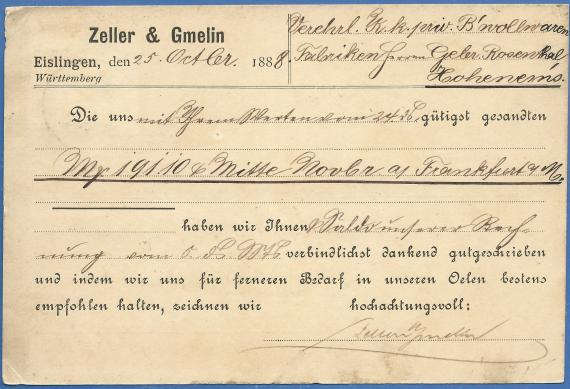 Zeller & Gmelin
Eislingen, den 25. October 1888.
Württemberg
Verehrl. K. k. priv. B'wollwaren
Fabriken Herrn Gebr. Rosenthal
Hohenems.
Die uns mit Ihrem Werten vom 24. ds. gütigst gesandten
191.10 Mitte Novbr a/ Frankfurt a/M.
haben wir Ihnen Saldo unserer Rech-
nung vom verbindlichst dankend gutgeschrieben
und indem wir uns für ferneren Bedarf in unseren Oelen bestens
empfohlen halten, zeichnen wir hochachtungsvoll:
Zeller & Gmelin